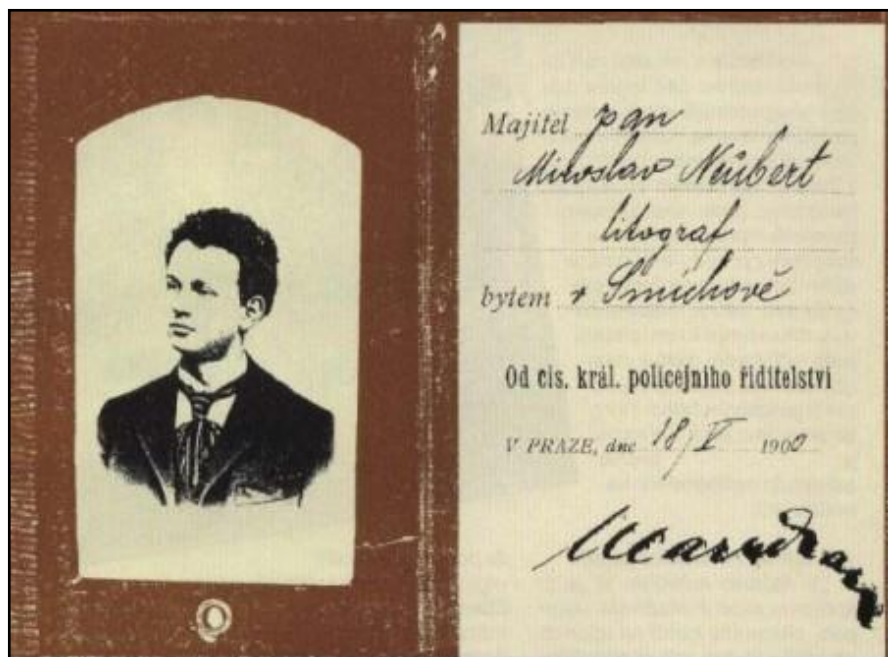 Majitel pan
Miroslav Neübert
litograf
bytem v Smíchově
Od cis. král. policejního řiditelství
V PRAZE, dne 18/V 1900